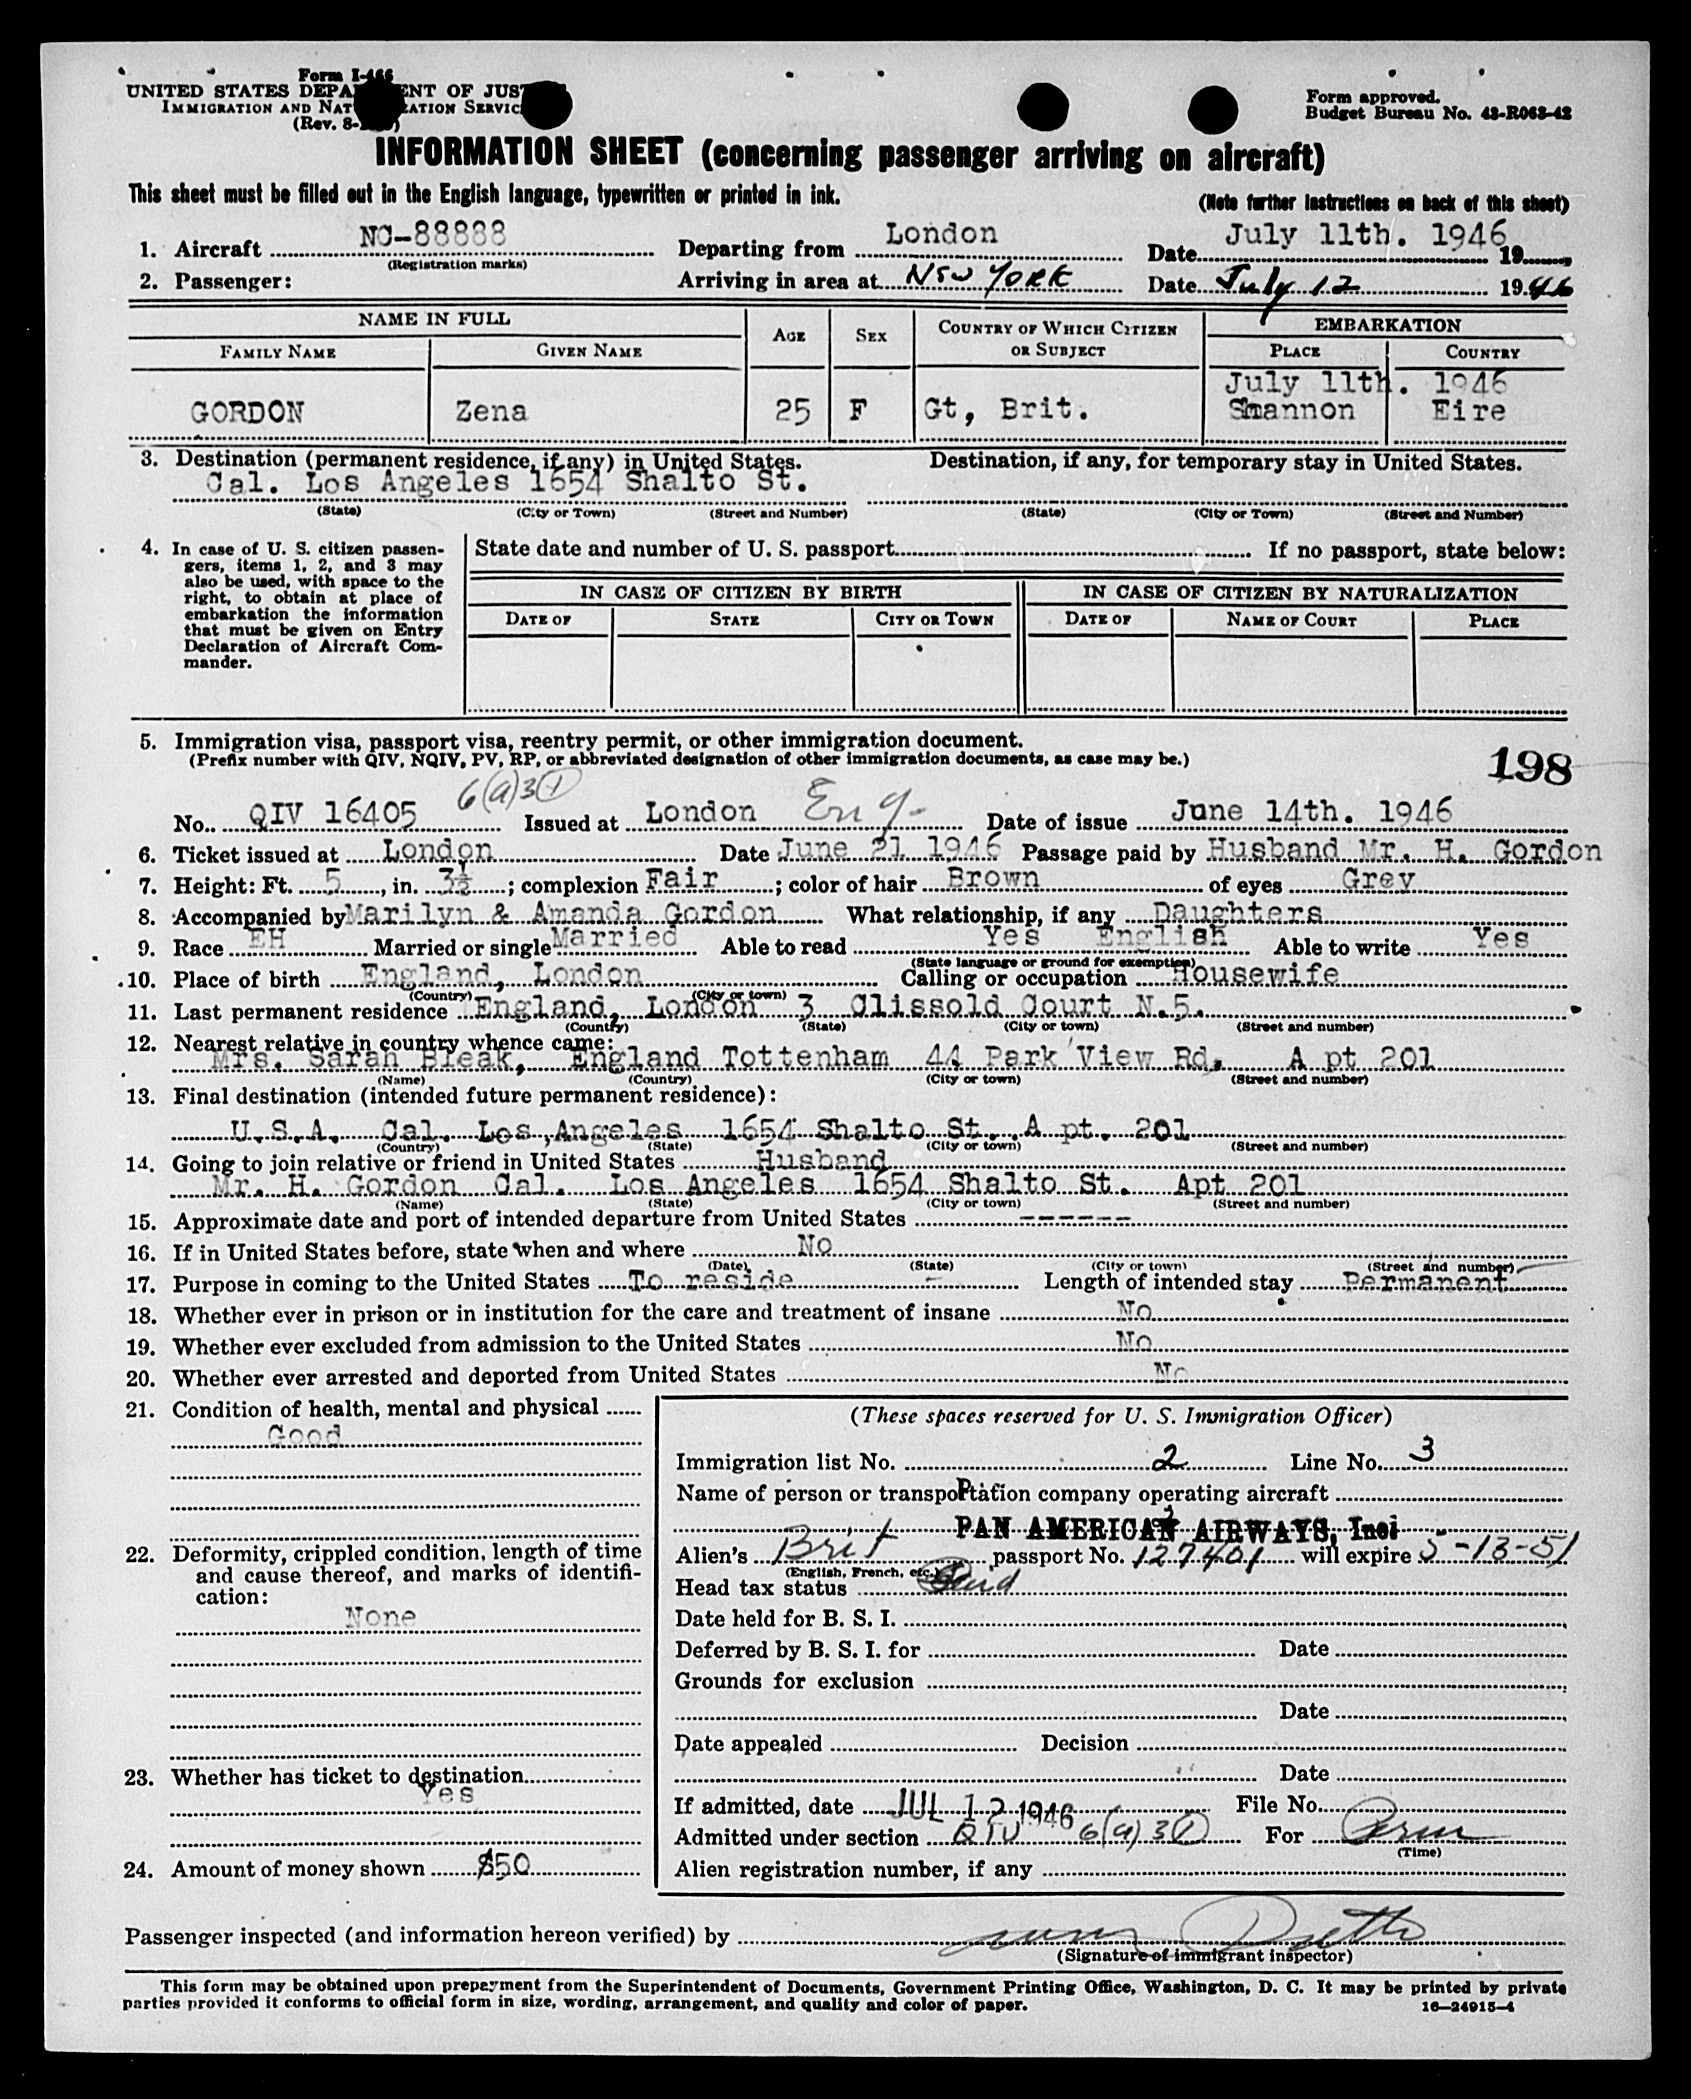 Form I-466
UNITED STATES DEPARTMENT OF JUSTICE
IMMIGRATION AND NATURALIZATION SERVICE
(Rev. 8-
Form approved.
Budget Bureau No. 43-R063-42
INFORMATION SHEET (concerning passenger arriving on aircraft)
This sheet must be filled out in the English language, typewritten or printed in ink.
(Note further instructions on back of this sheet)
1. Aircraft NC-88888 Departing from London Date July 11th. 1946 19
(Registration marks)
2. Passenger: Arriving in area at NEW YORK Date July 12 1946
NAME IN FULL AGE SEX COUNTRY OF WHICH CITIZEN OR SUBJECT EMBARKATION
FAMILY NAME GIVEN NAME PLACE COUNTRY
July 11th. 1946
GORDON Zena 25 F Gt, Brit. Shannon Eire
3. Destination (permanent residence, if any) in United States. Destination, if any, for temporary stay in United States.
Cal. Los Angeles 1654 Shalto St.
(State) (City or Town) (Street and Number) (State) (City or Town) (Street and Number)
4. In case of U. S. citizen passen-
gers, items 1, 2, and 3 may
also be used, with space to the
right, to obtain at place of
embarkation the information
that must be given on Entry
Declaration of Aircraft Com-
mander.
State date and number of U. S. passport If no passport, state below:
IN CASE OF CITIZEN BY BIRTH IN CASE OF CITIZEN BY NATURALIZATION
DATE OF STATE CITY OR TOWN DATE OF NAME OF COURT PLACE
5. Immigration visa, passport visa, reentry permit, or other immigration document.
(Prefix number with QIV, NQIV, PV, RP, or abbreviated designation of other immigration documents, as case may be.)
198
6(a)3(1)
No. QIV 16405 Issued at London Eng. Date of issue June 14th. 1946
6. Ticket issued at London Date June 21 1946 Passage paid by Husband Mr. H. Gordon
7. Height: Ft. 5, in. 3½; complexion Fair; color of hair Brown of eyes Grey
8. Accompanied by Marilyn & Amanda Gordon What relationship, if any Daughters
9. Race EH Married or single Married Able to read Yes English Able to write Yes
(State language or ground for exemption)
10. Place of birth England, London Calling or occupation Housewife
(Country) (City or town)
11. Last permanent residence England, London 3 Clissold Court N.5.
(Country) (State) (City or town) (Street and number)
12. Nearest relative in country whence came:
Mrs. Sarah Bleak, England Tottenham 44 Park View Rd, A pt 201
(Name) (Country) (City or town) (Street and number)
13. Final destination (intended future permanent residence):
U.S.A. Cal. Los,Angeles 1654 Shalto St. A pt. 201
(Country) (State) (City or town) (Street and number)
14. Going to join relative or friend in United States Husband
Mr. H. Gordon Cal. Los Angeles 1654 Shalto St. Apt 201
(Name) (State) (City or town) (Street and number)
15. Approximate date and port of intended departure from United States ------
16. If in United States before, state when and where No
(Date) (State) (City or town) (Street and number)
17. Purpose in coming to the United States To reside - Length of intended stay Permanent
18. Whether ever in prison or in institution for the care and treatment of insane No
19. Whether ever excluded from admission to the United States No
20. Whether ever arrested and deported from United States No
21. Condition of health, mental and physical
Good
22. Deformity, crippled condition, length of time
and cause thereof, and marks of identifi-
cation:
None
23. Whether has ticket to destination
Yes
24. Amount of money shown $50
(These spaces reserved for U. S. Immigration Officer)
Immigration list No. 2 Line No. 3
Name of person or transportation company operating aircraft
PAN AMERICAN AIRWAYS, Inc.
Alien's Brit passport No. 127401 will expire 5-13-51
(English, French, etc.)
Head tax status Paid
Date held for B. S. I.
Deferred by B. S. I. for Date
Grounds for exclusion
Date
Date appealed Decision
Date
If admitted, date JUL 12 1946 File No.
Admitted under section QIV 6(a)3(1) For Perm
(Time)
Alien registration number, if any
Passenger inspected (and information hereon verified) by
(Signature of immigrant inspector)
This form may be obtained upon prepayment from the Superintendent of Documents, Government Printing Office, Washington, D. C. It may be printed by private
parties provided it conforms to official form in size, wording, arrangement, and quality and color of paper.
16—24915-4